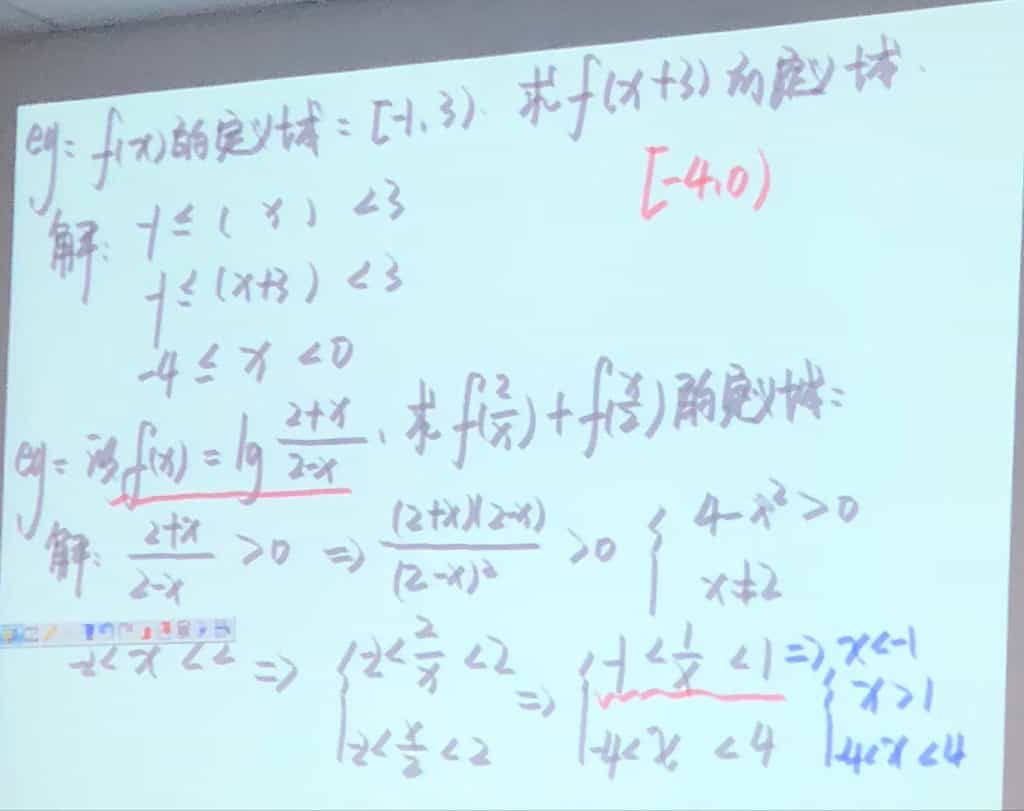 eg: f(x)的定义域=[-1,3). 求f(x+3)的定义域.
[-4,0)
解: -1≤(x)<3
-1≤(x+3)<3
-4≤x<0
eg: 设f(x)=lg (2+x)/(2-x), 求f(2/x)+f(x/2)的定义域:
解: (2+x)/(2-x)>0 => (2+x)(2-x)/(2-x)²>0 { 4-x²>0
x≠2
-2<x<2 => { -2<2/x<2 => { -1<1/x<1 => { x<-1
x>1
-2<x/2<2 -4<x<4 -4<x<4